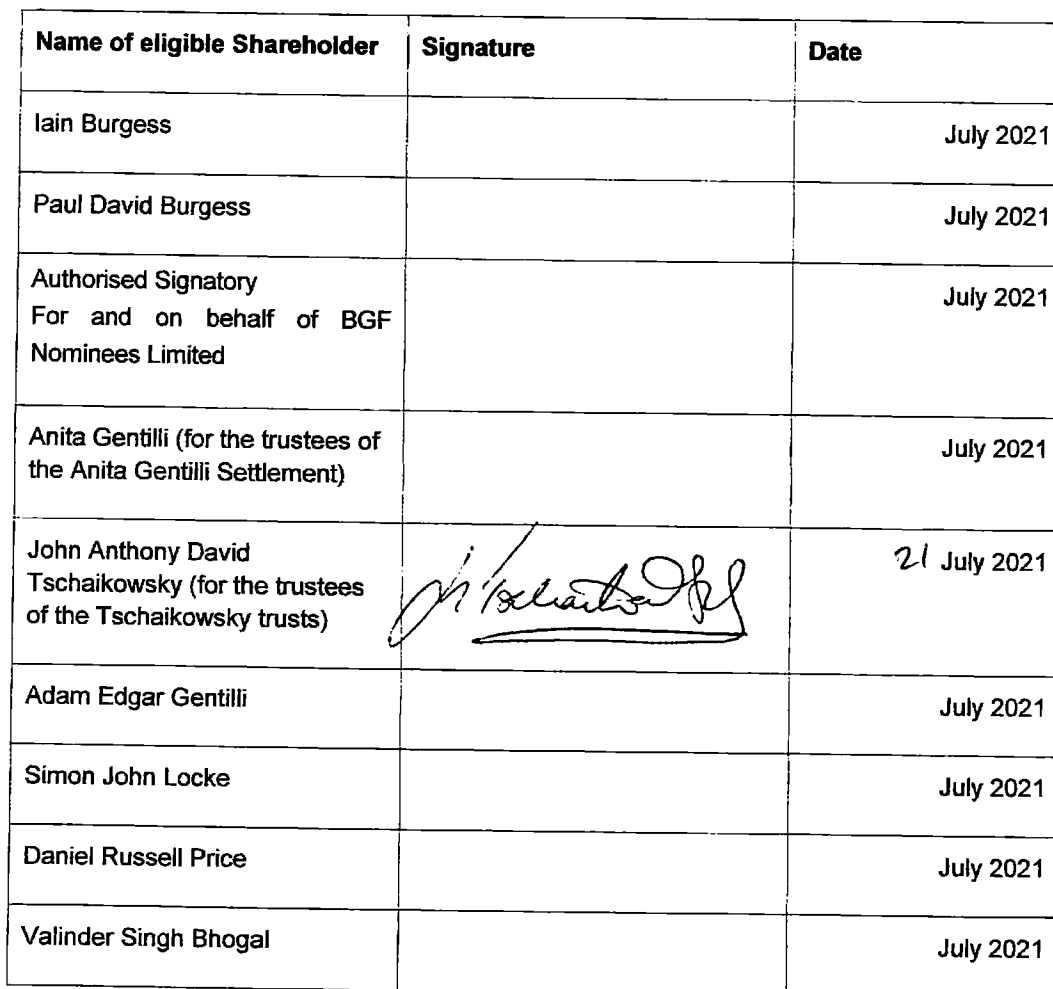 Name of eligible Shareholder Signature Date
Iain Burgess July 2021
Paul David Burgess July 2021
Authorised Signatory July 2021
For and on behalf of BGF
Nominees Limited
Anita Gentilli (for the trustees of July 2021
the Anita Gentilli Settlement)
John Anthony David 21 July 2021
Tschaikowsky (for the trustees
of the Tschaikowsky trusts)
Adam Edgar Gentilli July 2021
Simon John Locke July 2021
Daniel Russell Price July 2021
Valinder Singh Bhogal July 2021